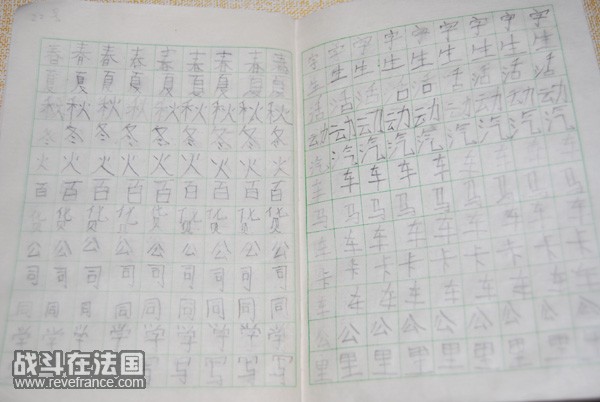 春春春春春春春春春
夏夏夏夏夏夏夏夏夏
秋秋秋秋秋秋秋秋秋
冬冬冬冬冬冬冬冬冬
火火火火火火火火火
百百百百百百百百百
货货货货货货货货货
公公公公公公公公公
司司司司司司司司司
同同同同同同同同同
学学学学学学学学学
写写写写写写写写写
字字字字字字字字字
生生生生生生生生生
活活活活活活活活活
动动动动动动动动动
汽汽汽汽汽汽汽汽汽
车车车车车车车车车
马马马马马马马马马
车车车车车车车车车
卡卡卡卡卡卡卡卡卡
车车车车车车车车车
公公公公公公公公公
里里里里里里里里里
战斗在法国
www.revefrance.com